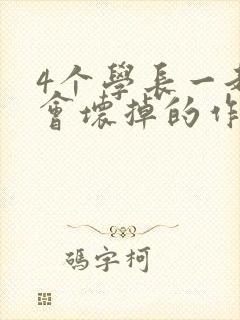 4个學長一
會壞掉的作
碼字柯